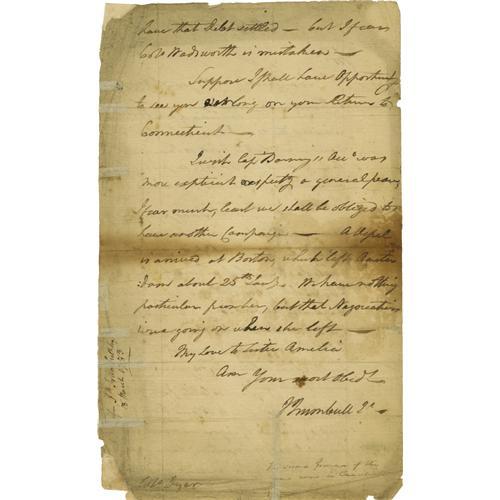 have that Debt settled — but I fear
Colo Wadsworth is mistaken —
Suppose I shall have Opportunity
to see you long on your Return to
Connecticut —
I wish Cap Barney's Acco was
more explicit respectg a general peace,
I fear much, least we shall be obliged to
have another Campaign — A
is arrived at Boston, which left Amster
dam about 25th Jany. We have nothing
particular from her, but that Negociation
was going on when she left —
My Love to Sister Amelia
Am Your most Obedt
J Trumbull Jr